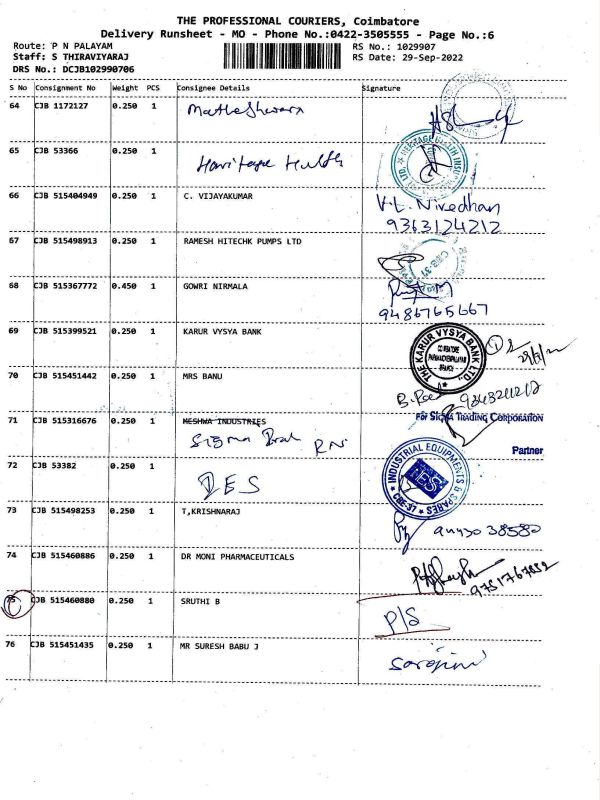 THE PROFESSIONAL COURIERS, Coimbatore
Delivery Runsheet - MO - Phone No.:0422-3505555 - Page No.:6
Route: P N PALAYAM
RS No.: 1029907
Staff: S THIRAVIYARAJ
RS Date: 29-Sep-2022
DRS No.: DCJB102990706
S No Consignment No Weight PCS Consignee Details Signature
64 CJB 1172127 0.250 1
65 CJB 53366 0.250 1
HERITAGE HEALTH
66 CJB 515404949 0.250 1 C. VIJAYAKUMAR
V.L. Nivedhan
9363124212
67 CJB 515498913 0.250 1 RAMESH HITECHK PUMPS LTD
68 CJB 515367772 0.450 1 GOWRI NIRMALA
9486765667
69 CJB 515399521 0.250 1 KARUR VYSYA BANK
THE KARUR VYSYA BANK LTD.,
COIMBATORE
BRANCH
70 CJB 515451442 0.250 1 MRS BANU
71 CJB 515316676 0.250 1 KESHWA INDUSTRIES
For SIGMA TRADING CORPORATION
Partner
72 CJB 53382 0.250 1
INDUSTRIAL EQUIPMENTS & SPARES
CBE-37
73 CJB 515498253 0.250 1 T,KRISHNARAJ
74 CJB 515460886 0.250 1 DR MONI PHARMACEUTICALS
75 CJB 515460880 0.250 1 SRUTHI B
P/S
76 CJB 515451435 0.250 1 MR SURESH BABU J
Sarojini